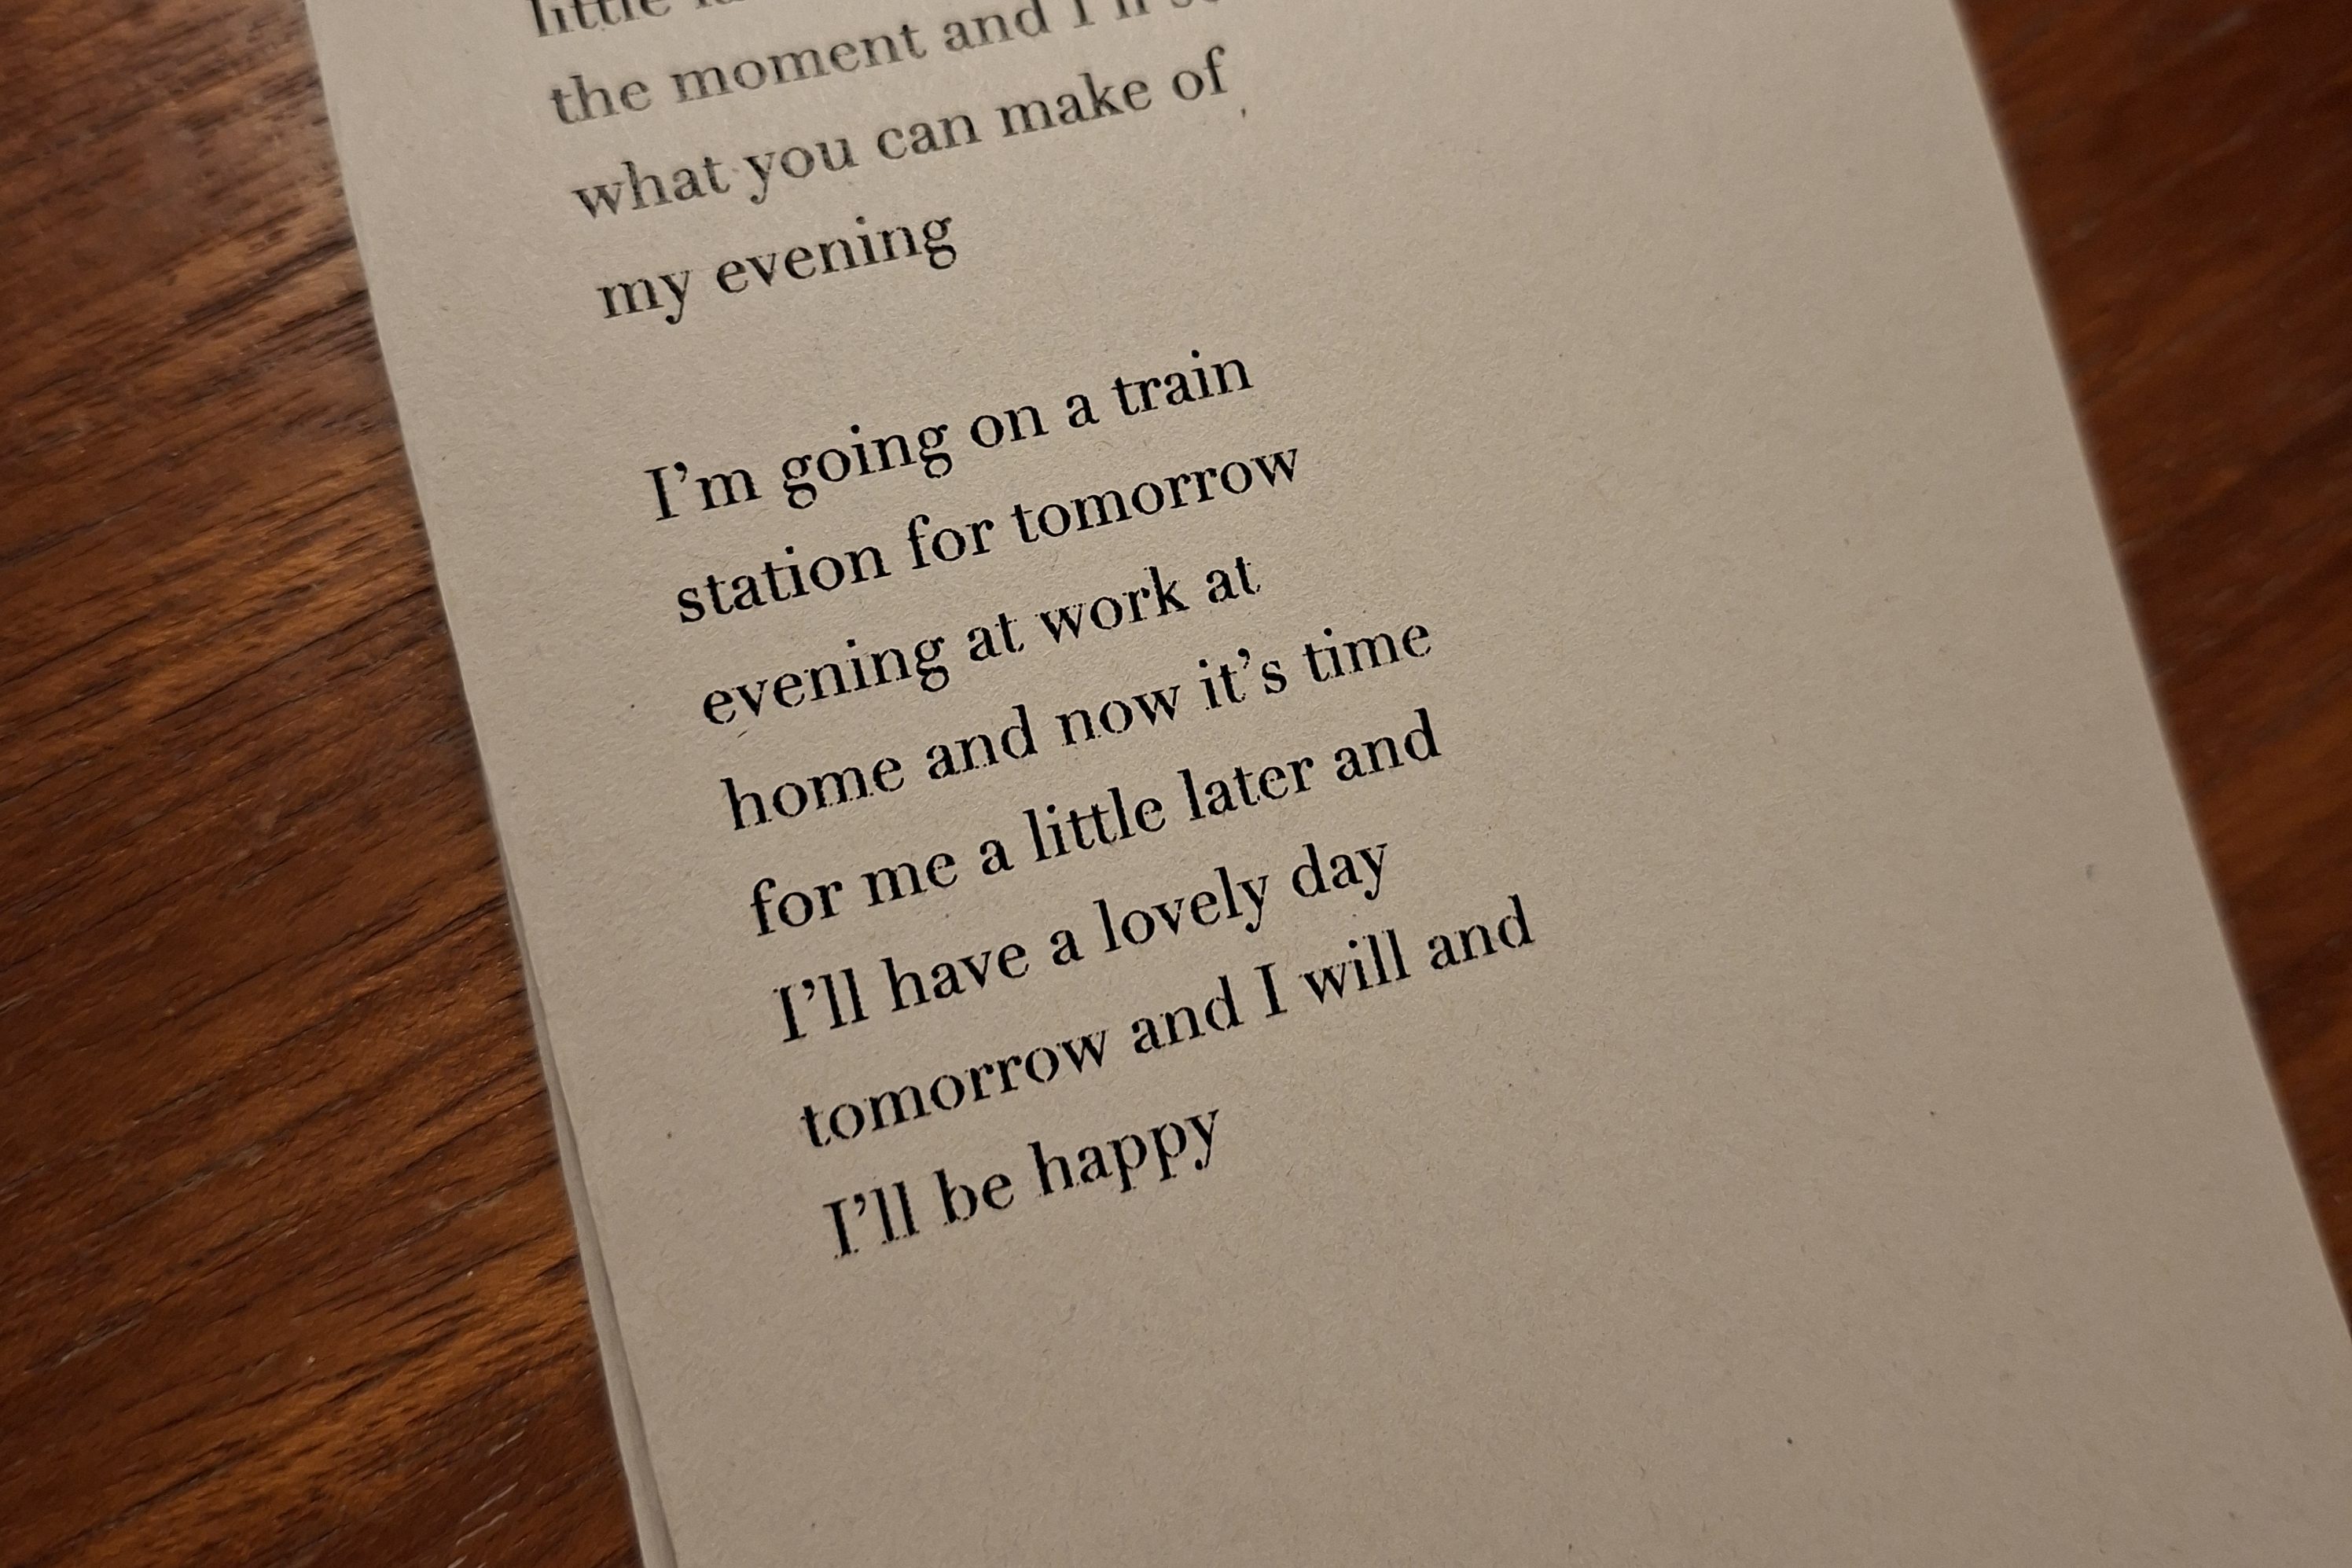 little
the moment and I'll
what you can make of
my evening
I'm going on a train
station for tomorrow
evening at work at
home and now it's time
for me a little later and
I'll have a lovely day
tomorrow and I will and
I'll be happy